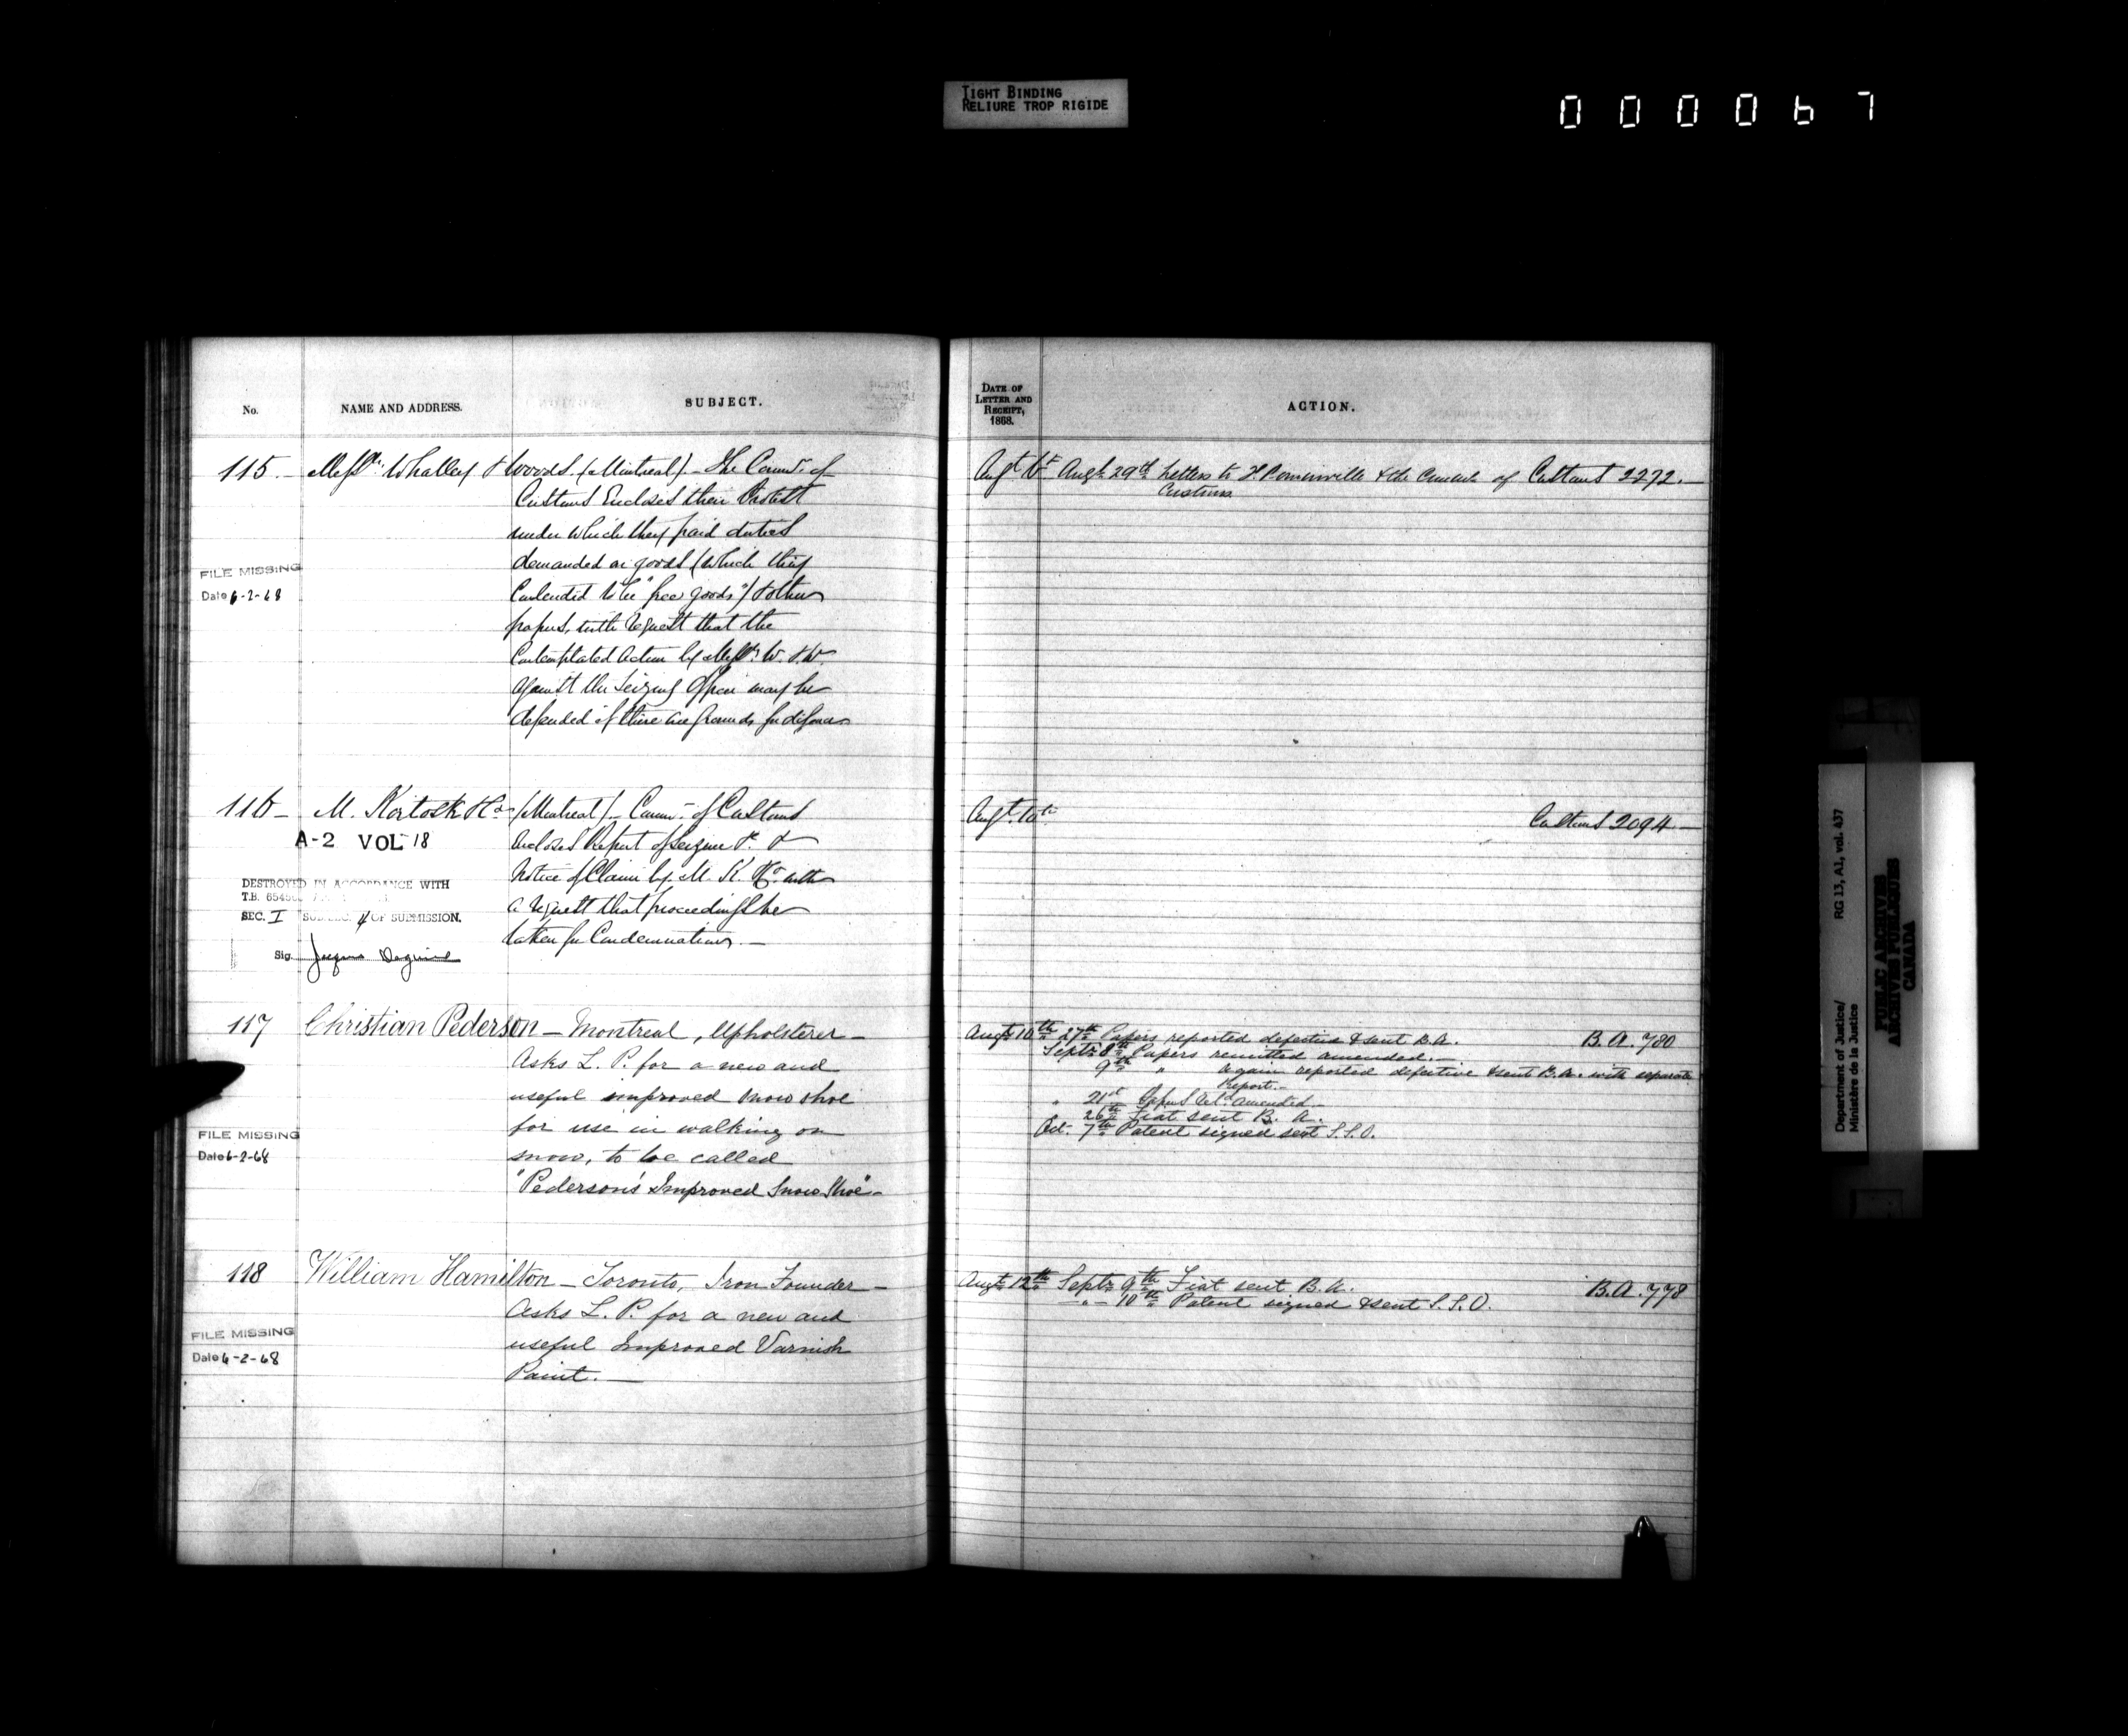 TIGHT BINDING
RELIURE TROP RIGIDE
000067
No.
NAME AND ADDRESS.
SUBJECT.
DATE OF
LETTER AND
RECEIPT,
1868.
ACTION.
115. Messrs. Whalley & Woods. (Montreal) - The Commr. of
Customs Encloses their Protest
under which they paid duties
demanded on goods (which they
Contended to be "free goods") & other
papers, with request that the
Contemplated Action by Messrs W. & W.
against the Seizing Officer may be
defended if there are grounds for defence
FILE MISSING
Date 6-2-68
Augt Augt. 29th Letters to & the Commr. of Customs 2272.
Customs
116 - M. Kortosk & Co (Montreal) - Commr. of Customs
encloses Report of Seizure &
Notice of Claim by M. K. & Co. with
a request that proceedings be
taken for Condemnation. -
A-2 VOL 18
DESTROYED IN ACCORDANCE WITH
T.B.
SEC. I OF SUBMISSION.
Sig.
Augt. 10th
Customs 2094 -
117 Christian Pederson - Montreal, Upholsterer -
Asks L. P. for a new and
useful improved snow shoe
for use in walking on
snow, to be called
"Pederson's Improved Snow Shoe" -
FILE MISSING
Date 6-2-68
Augt. 10th 27th Papers reported defective & sent B.A. B.A. 780
Septr. 8th Papers remitted amended. -
9th " again reported defective & sent B.A. with separate
Report. -
" 21st Papers retd. amended -
26th Fiat sent B. A.
Oct. 7th Patent signed sent S.S.O.
118 William Hamilton - Toronto, Iron Founder -
Asks L. P. for a new and
useful Improved Varnish
Paint. -
FILE MISSING
Date 6-2-68
Augt. 12th Septr. 9th Fiat sent B.A. B.A. 778
- " - 10th Patent signed & sent S.S.O.
RG 13, A1, vol. 437
Department of Justice/
Ministère de la Justice
PUBLIC ARCHIVES
ARCHIVES PUBLIQUES
CANADA